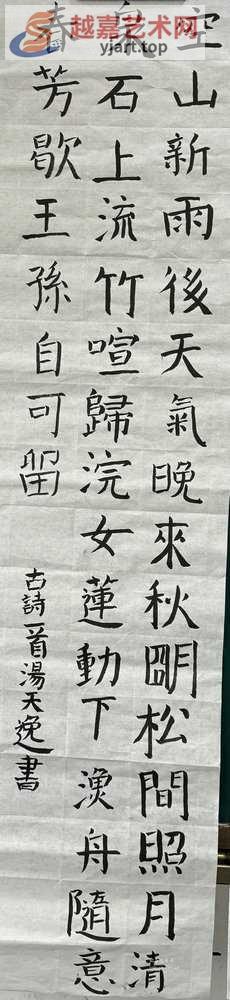 越嘉艺术网
yjart.top
空山新雨後天氣晚來秋明松間照月清
泉石上流竹喧歸浣女蓮動下漁舟隨意
春芳歇王孫自可留
古詩一首湯天逸書